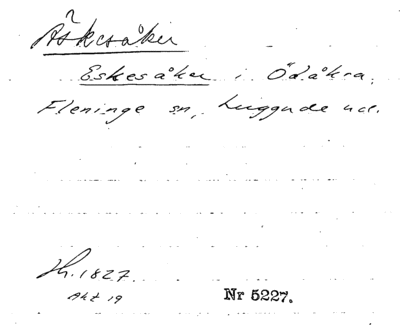 Äskesåker
Eskesåker i Ödåkra,
Fleninge sn, Luggude hd.
Lh. 1827.
Akt 19
Nr 5227.